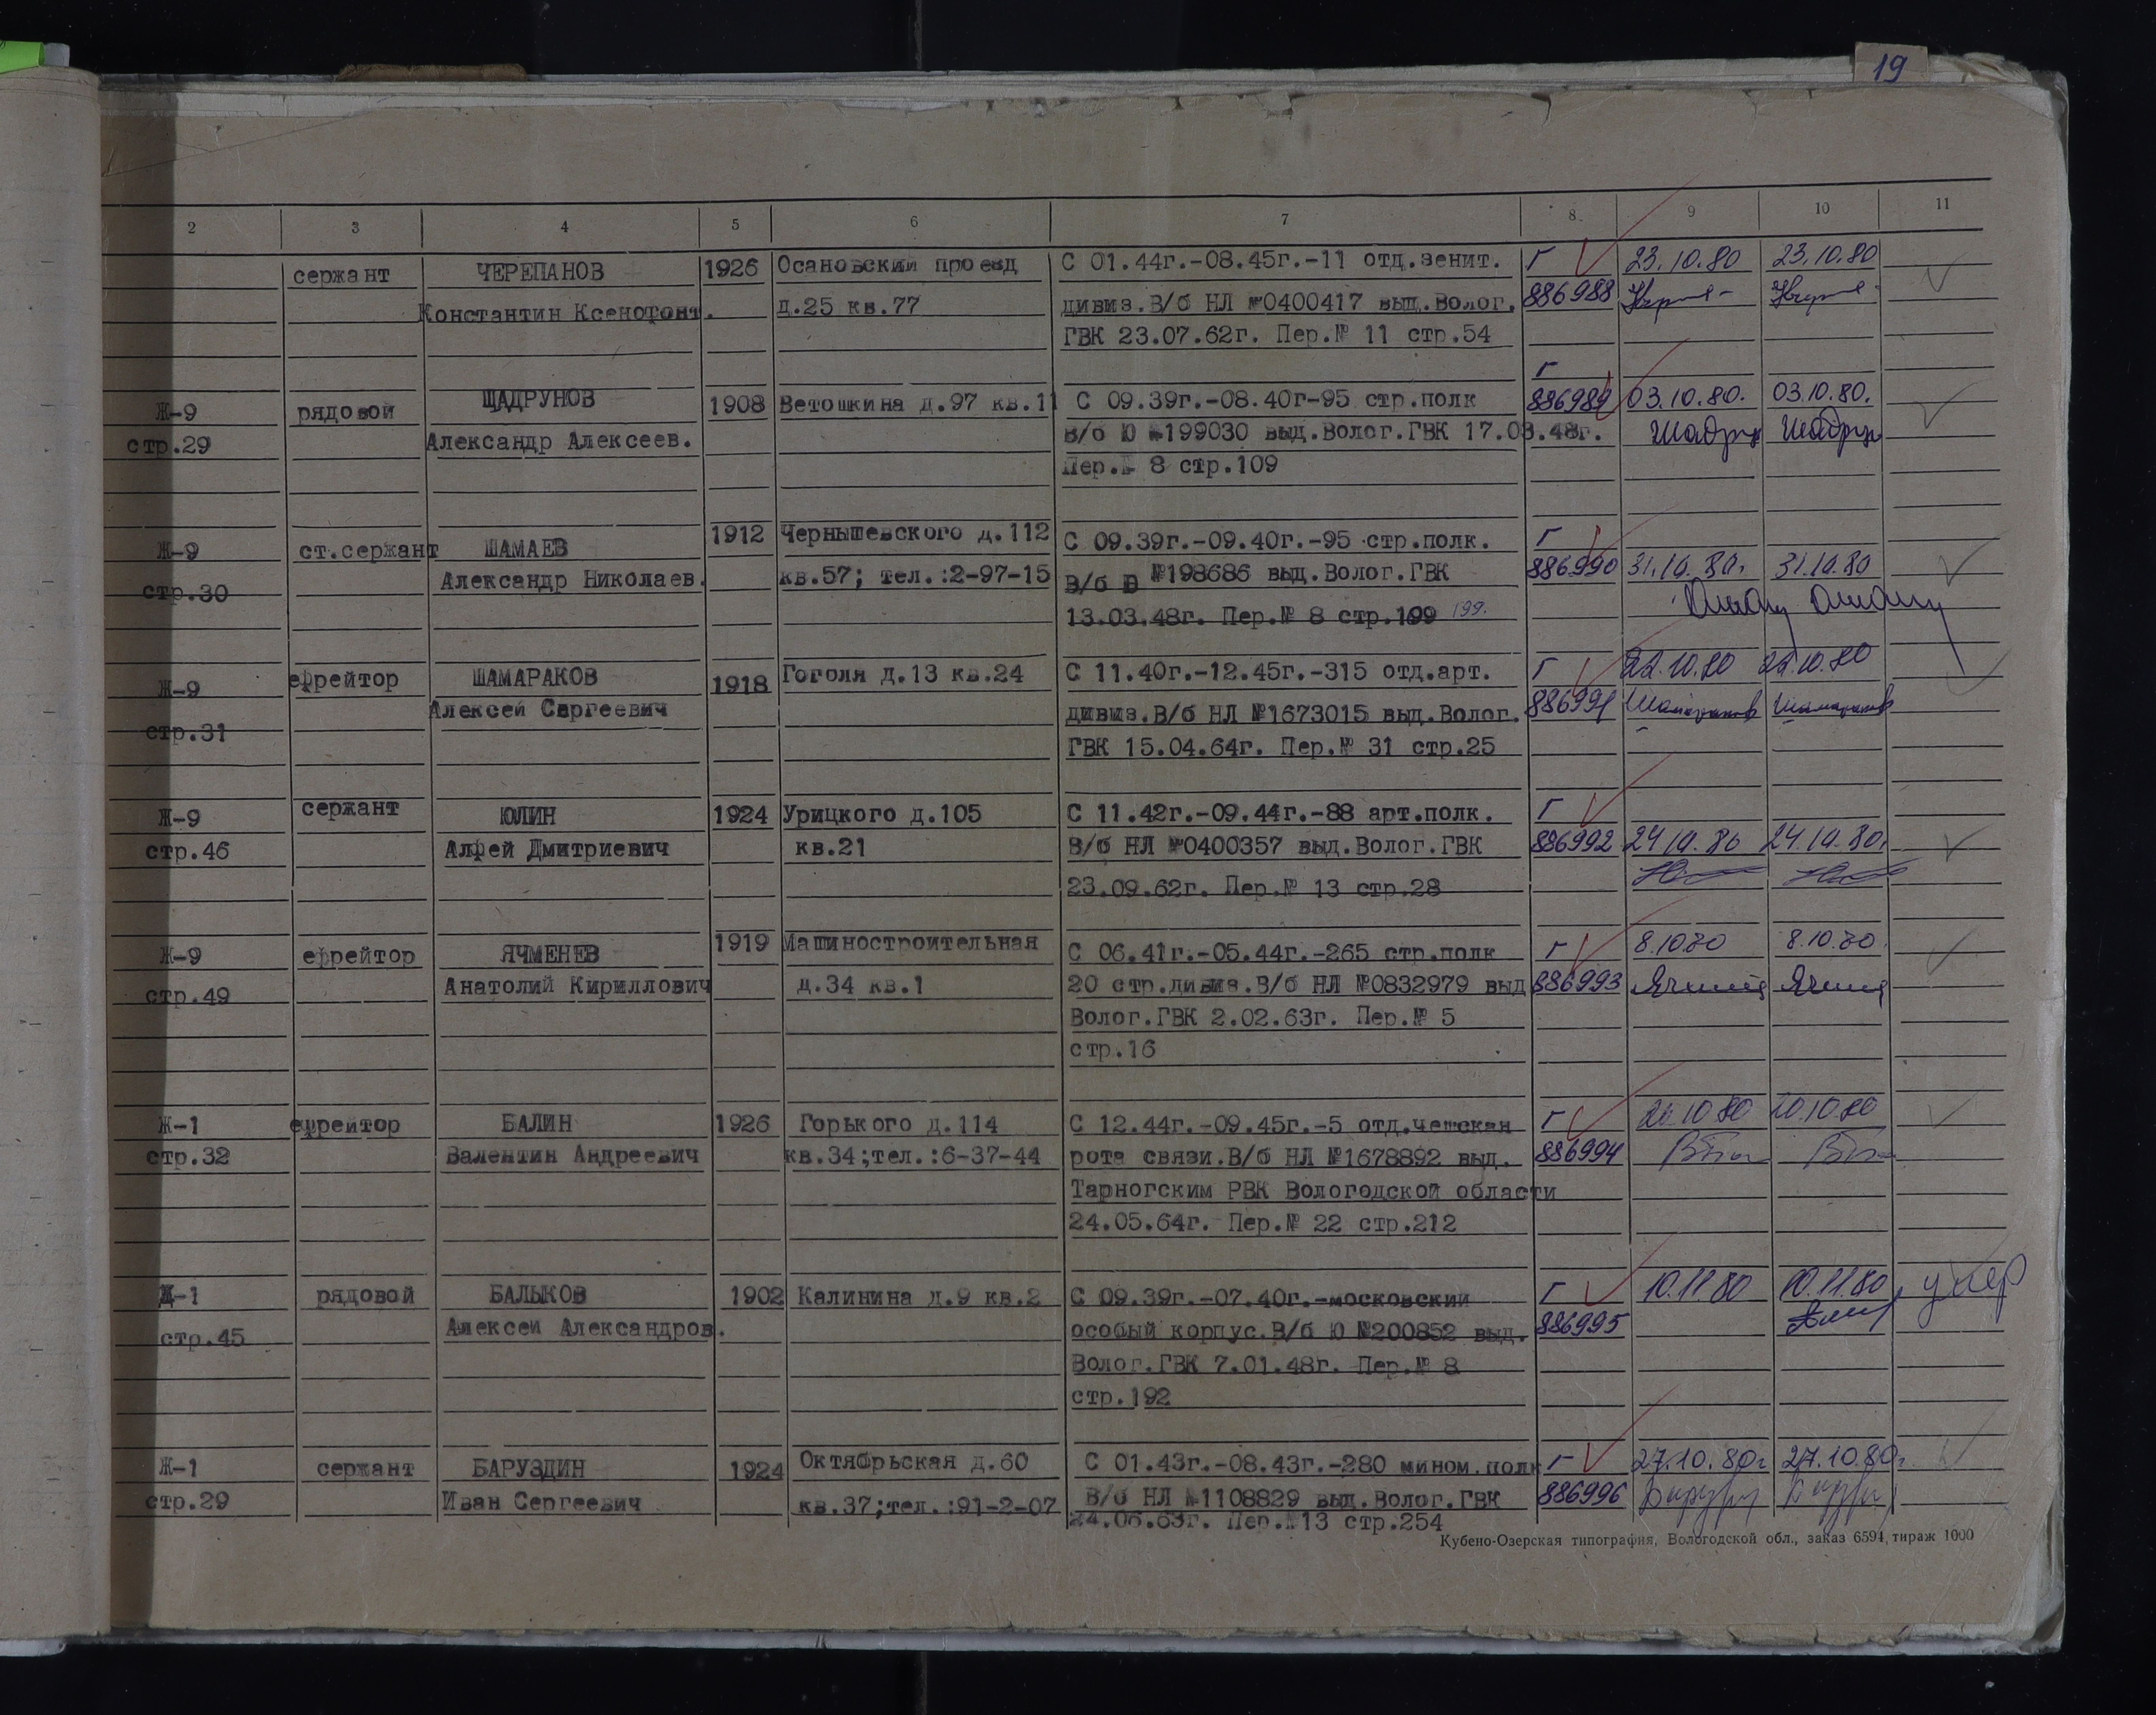 19
2 3 4 5 6 7 8 9 10 11
сержант ЧЕРЕПАНОВ 1926 Осановский проезд С 01.44г.-08.45г.-11 отд.зенит. Г 23.10.80 23.10.80
Константин Ксенофонт. д.25 кв.77 дивиз.В/б НЛ №0400417 выд.Волог. 886988
ГВК 23.07.62г. Пер.№ 11 стр.54
Г
Ж-9 рядовой ШАДРУНОВ 1908 Ветошкина д.97 кв.11 С 09.39г.-08.40г-95 стр.полк 886989 03.10.80. 03.10.80.
стр.29 Александр Алексеев. В/б Ю №199030 выд.Волог.ГВК 17.03.48г.
Пер.№ 8 стр.109
Ж-9 ст.сержант ШАМАЕВ 1912 Чернышевского д.112 С 09.39г.-09.40г.-95 стр.полк. Г
стр.30 Александр Николаев. кв.57; тел.:2-97-15 В/б Ю №198686 выд.Волог.ГВК 886990 31.10.80. 31.10.80
13.03.48г. Пер.№ 8 стр.199 199.
Ж-9 ефрейтор ШАМАРАКОВ 1918 Гоголя д.13 кв.24 С 11.40г.-12.45г.-315 отд.арт. Г 22.10.80 22.10.80
стр.31 Алексей Сергеевич дивиз.В/б НЛ №1673015 выд.Волог. 886991 Шамараков Шамараков
ГВК 15.04.64г. Пер.№ 31 стр.25
Ж-9 сержант ЮЛИН 1924 Урицкого д.105 С 11.42г.-09.44г.-88 арт.полк. Г
стр.46 Алфей Дмитриевич кв.21 В/б НЛ №0400357 выд.Волог.ГВК 886992 24.10.80 24.10.80
23.09.62г. Пер.№ 13 стр.28
Ж-9 ефрейтор ЯЧМЕНЕВ 1919 Машиностроительная С 06.41г.-05.44г.-265 стр.полк Г 8.10.80 8.10.80
стр.49 Анатолий Кириллович д.34 кв.1 20 стр.дивиз.В/б НЛ №0832979 выд 886993
Волог.ГВК 2.02.63г. Пер.№ 5
стр.16
Ж-1 ефрейтор БАЛИН 1926 Горького д.114 С 12.44г.-09.45г.-5 отд.чешская Г 20.10.80 20.10.80
стр.32 Валентин Андреевич кв.34;тел.:6-37-44 рота связи.В/б НЛ №1678892 выд. 886994
Тарногским РВК Вологодской области
24.05.64г. Пер.№ 22 стр.212
Ж-1 рядовой БАЛЫКОВ 1902 Калинина д.9 кв.2 С 09.39г.-07.40г.-московский Г 10.11.80 10.11.80 умер
стр.45 Алексей Александров. особый корпус.В/б Ю №200852 выд. 886995
Волог.ГВК 7.01.48г. Пер.№ 8
стр.192
Ж-1 сержант БАРУЗДИН 1924 Октябрьская д.60 С 01.43г.-08.43г.-280 мином.полк Г 27.10.80г 27.10.80г.
стр.29 Иван Сергеевич кв.37;тел.:91-2-07 В/б НЛ №1108829 выд.Волог.ГВК 886996
24.06.63г. Пер.№13 стр.254
Кубено-Озерская типография, Вологодской обл., заказ 6594, тираж 1000